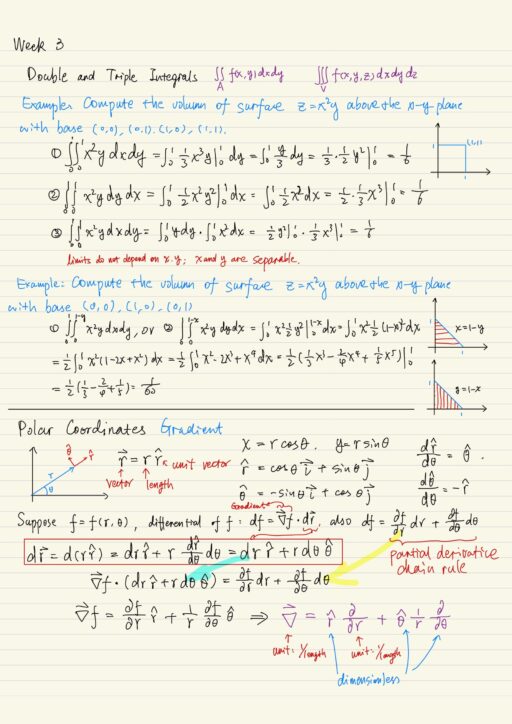 Week 3
Double and Triple Integrals ∬_A f(x,y)dxdy ∭_V f(x,y,z)dxdydz
Example: Compute the volumn of surface z=x²y above the x-y plane
with base (0,0), (0,1), (1,0), (1,1).
① ∫₀¹∫₀¹ x²y dxdy = ∫₀¹ ⅓x³y|₀¹ dy = ∫₀¹ y/3 dy = ⅓·½y²|₀¹ = 1/6
1 (1,1)
1
② ∫₀¹∫₀¹ x²y dydx = ∫₀¹ ½x²y²|₀¹ dx = ∫₀¹ ½x²dx = ½·⅓x³|₀¹ = 1/6
③ ∫₀¹∫₀¹ x²y dxdy = ∫₀¹ ydy·∫₀¹ x²dx = ½y²|₀¹·⅓x³|₀¹ = 1/6
limits do not depend on x.y; x and y are separable.
Example: Compute the volumn of surface z=x²y above the x-y plane
with base (0,0), (1,0), (0,1)
① ∫₀¹∫₀^{1-y} x²y dxdy, or ② ∫₀¹∫₀^{1-x} x²y dydx = ∫₀¹ x²½y²|₀^{1-x} dx = ∫₀¹ x²½(1-x)²dx
1 x=1-y
1
= ½∫₀¹ x²(1-2x+x²)dx = ½∫₀¹ x²-2x³+x⁴dx = ½(⅓x³-2/4x⁴+1/5x⁵)|₀¹
= ½(1/3-2/4+1/5) = 1/60
1 y=1-x
1
Polar Coordinates Gradient
θ̂ r̂
r
θ
r⃗ = r r̂ unit vector
vector length
x = r cosθ. y = r sinθ
r̂ = cosθ i⃗ + sinθ j⃗
θ̂ = -sinθ i⃗ + cosθ j⃗
dr̂/dθ = θ̂.
dθ̂/dθ = -r̂
Gradient
Suppose f=f(r,θ), differential of f: df=∇⃗f·dr⃗, also df=∂f/∂r dr + ∂f/∂θ dθ
dr⃗ = d(r r̂) = dr r̂ + r dr̂/dθ dθ = dr r̂ + r dθ θ̂
partial derivative
chain rule
∇⃗f·(dr r̂ + r dθ θ̂) = ∂f/∂r dr + ∂f/∂θ dθ
∇⃗f = ∂f/∂r r̂ + 1/r ∂f/∂θ θ̂ ⇒ ∇⃗ = r̂ ∂/∂r + θ̂ 1/r ∂/∂θ
unit: 1/length unit: 1/length
dimensionless